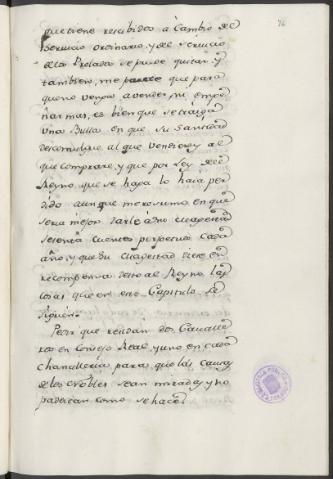 76
que tiene recebidos à Cambio del
servicio ordinario, y del servicio
de los Prelados se puede quitar: y
tambien me parece que para
que no vengan a vender, ni empe
ñar mas, es bien que se trayga
una Bulla en que Su Santidad
descomulgue al que vendiere y al
que comprare, y que por Ley del
Reyno que se haga lo haia per
dido aunque me resumo en que
seria mejor darle à su Magestad
setenta cuentos perpetuos cada
año, y que Su Magestad diese en
recompensa desto al Reyno las
cosas que en este Capitulo se
siguen.
Pedir que residan dos Cavalle
ros en Consejo Real, y uno en cada
Chancilleria para que las causas
de los Nobles sean miradas y no
padezcan como se hace.